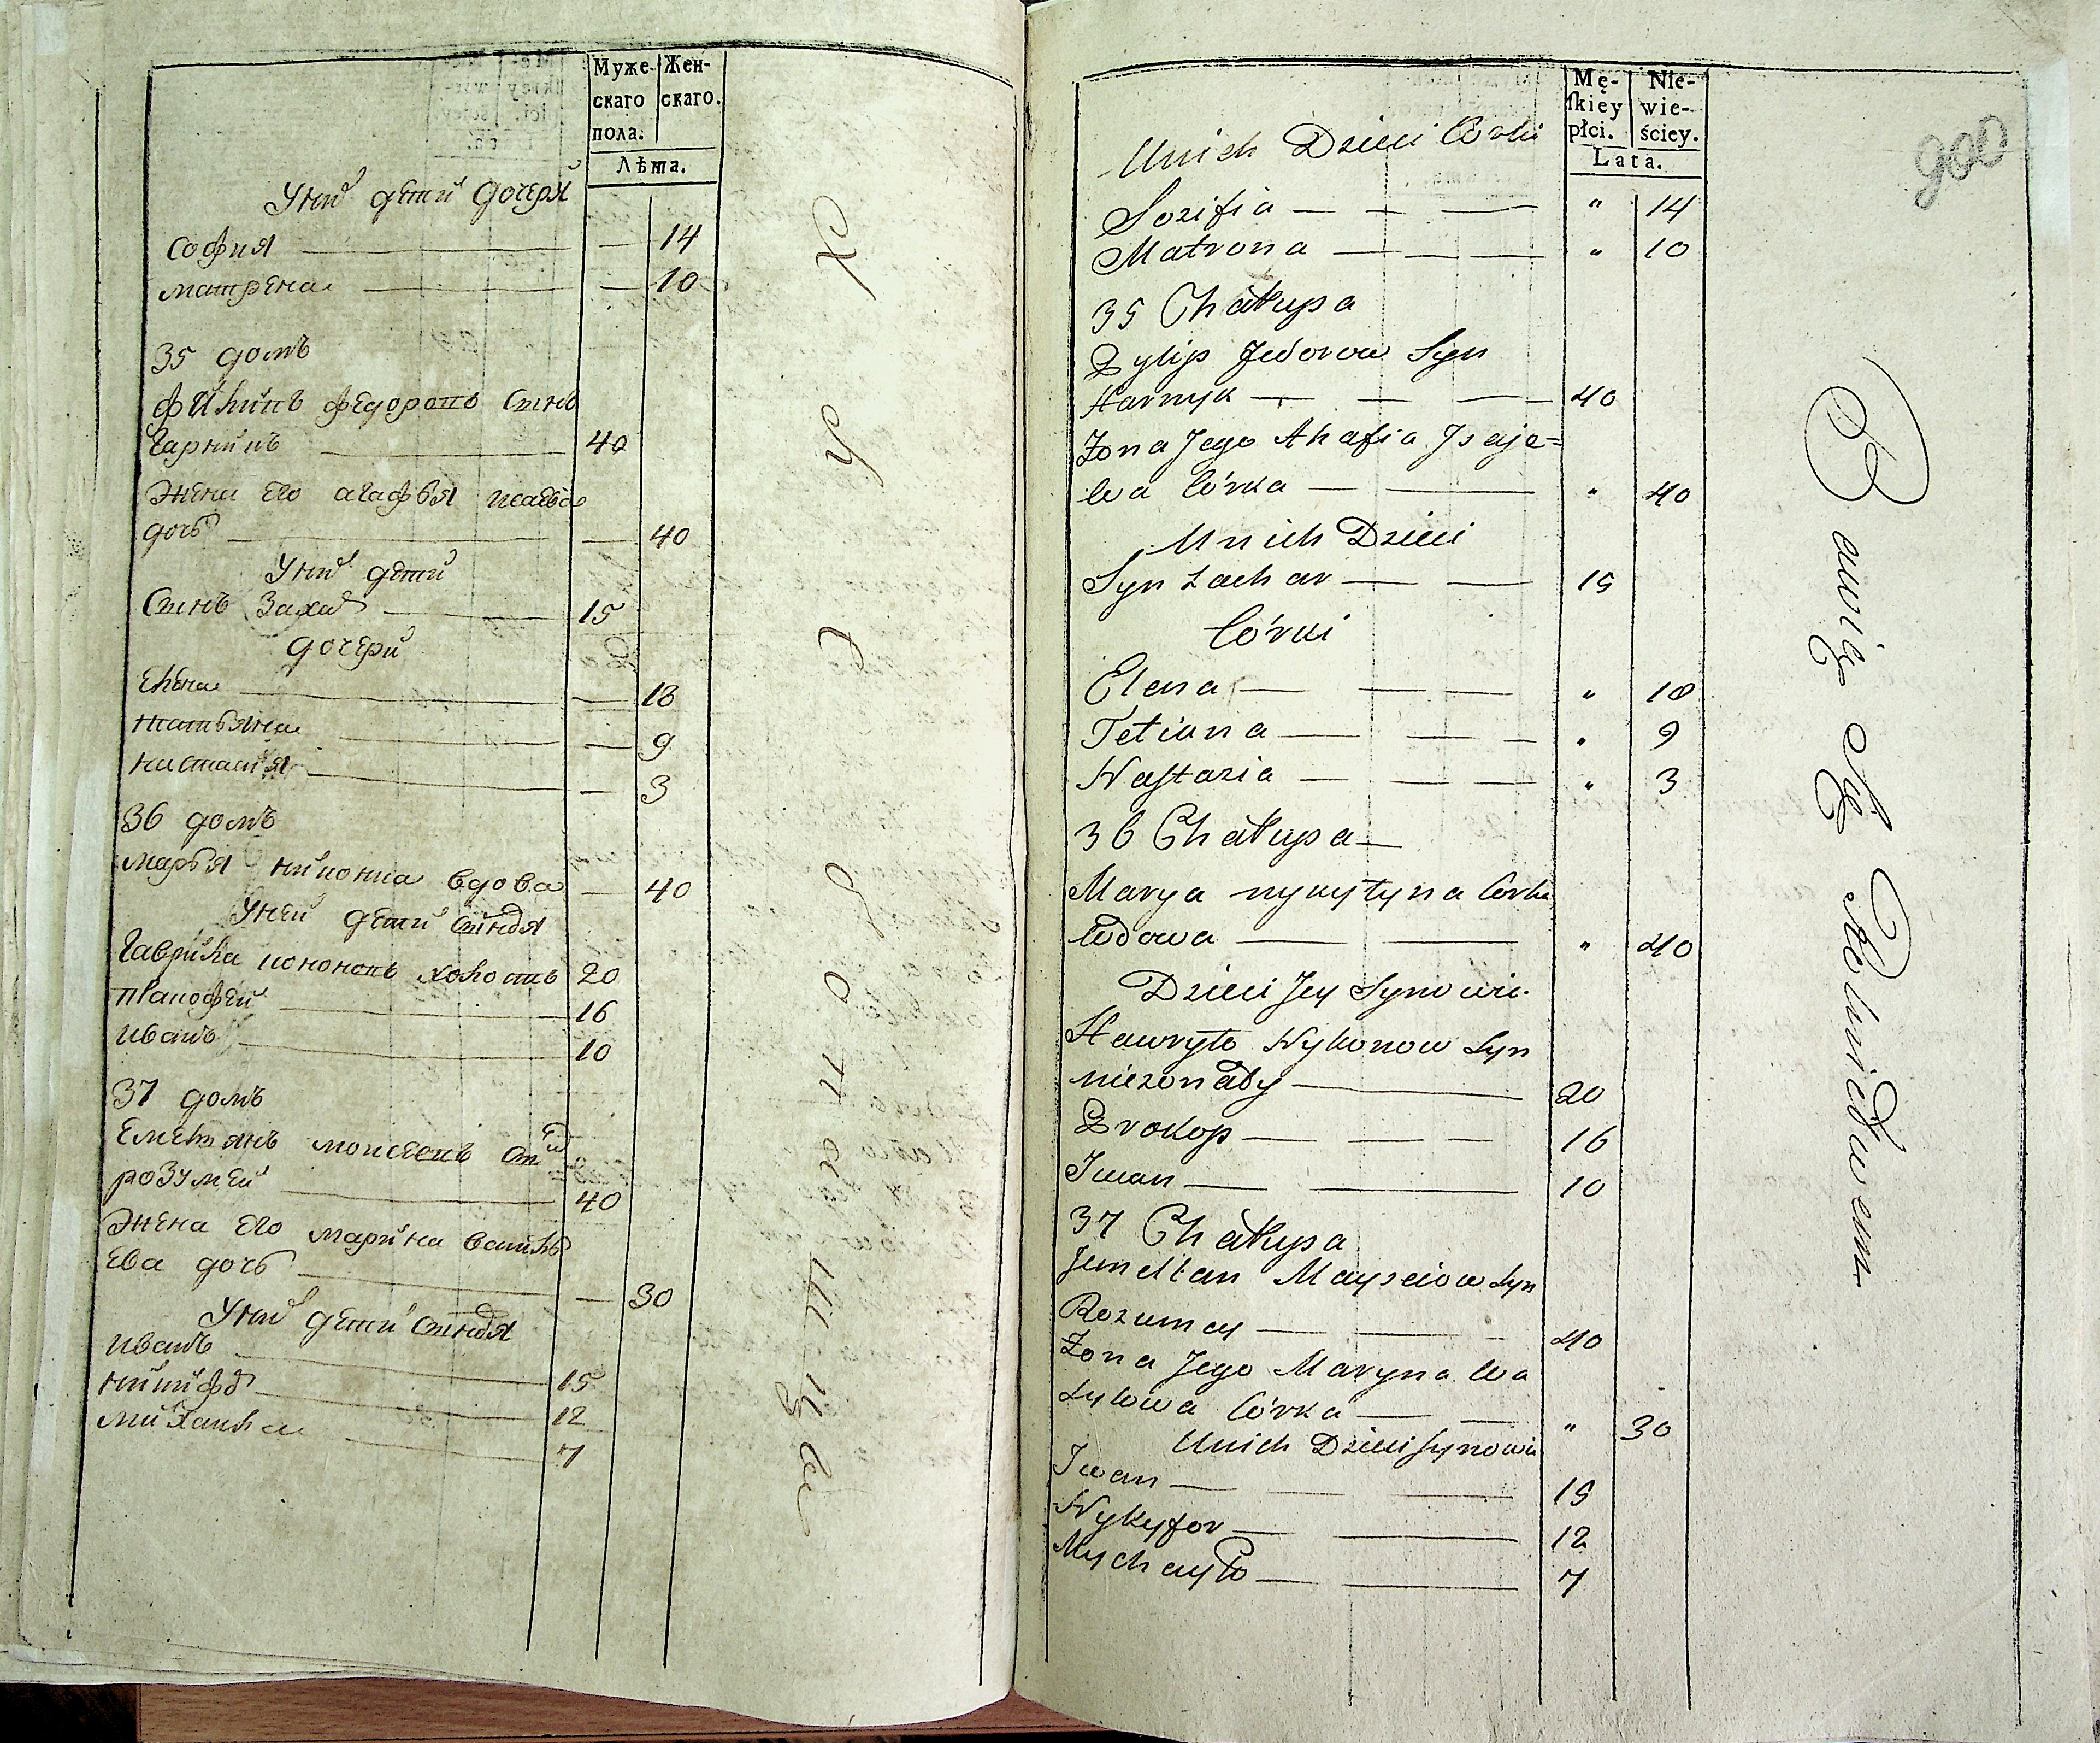 Муже- Жен-
скаго скаго.
пола.
Лѣта.
У них дети дочеря
София — 14
матрена — 10
35 домъ
филипъ федоровъ синъ
Гарникъ — 40
Жена его агафья исаева
дочь — 40
У них дети
Синъ Захар — 15
дочери
Елена — 18
татьяна — 9
настасия — 3
36 домъ
марья вдова — 40
У ней дети синовя
Гаврила холостъ 20
16
иванъ — 10
37 домъ
Емельянъ моисеевъ син
розумей — 40
Жена его марина василь
ева дочь — 30
У них дети синовя
иванъ — 15
никифор — 12
михаила — 7
900
Mę- Nie-
ſkiey wie-
płci. ściey.
Lata.
Unich Dzieci Corki
Sozifia — — — " 14
Matrona — — — " 10
35 Chałupa
Pylip Fedorow Syn
Harnyk — — — 40
Żona Jego Ahafia Jsaje=
wa Córka — — " 40
Unich Dzieci
Syn Zachar — — 15
Córki
Elena — — — " 18
Tetiana — — — " 9
Nastazia — — — " 3
36 Chałupa —
Marya nykytyna Corka
Wdowa — — " 40
Dzieci Jey Synowie
Hawryło Nykonow Syn
niezonaty — 20
Prokop — — — 16
Jwan — — 10
37 Chałupa
Jemelian Moyseiow Syn
Rozumey — — 40
Żona Jego Maryna Wa
sylowa Córka — — " 30
Unich Dzieci Synowie
Jwan — — — 15
Nykyfor — — 12
Mychayło — — 7